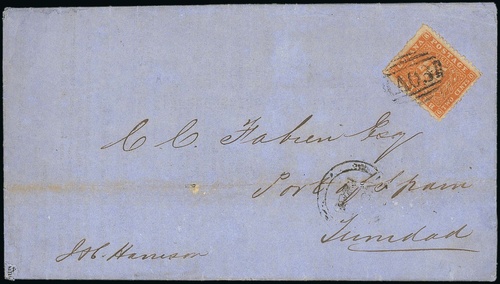 POSTAGE
A03
C. C. Fabien Esq
Port of Spain
Trinidad